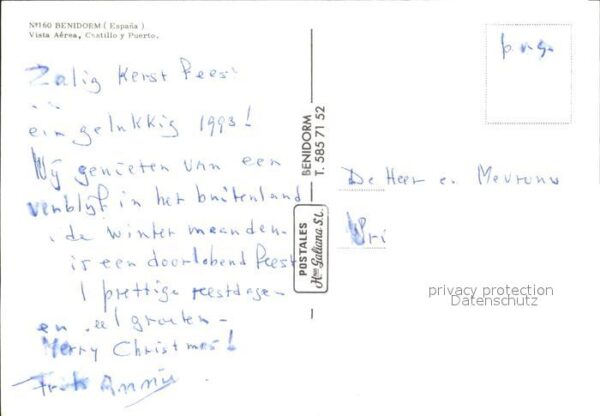 Nº160 BENIDORM ( España )
Vista Aérea, Castillo y Puerto.
Zalig Kerst Feest
een gelukkig 1993!
Wij genieten van een
verblijf in het buitenland
de winter maanden
is een doorlopend Feest
prettige feestdagen
en groeten
Merry Christmas!
Annie
BENIDORM
T. 585 71 52
POSTALES
Hnos Galiana S.L.
De Heer e. Mevrouw
privacy protection
Datenschutz